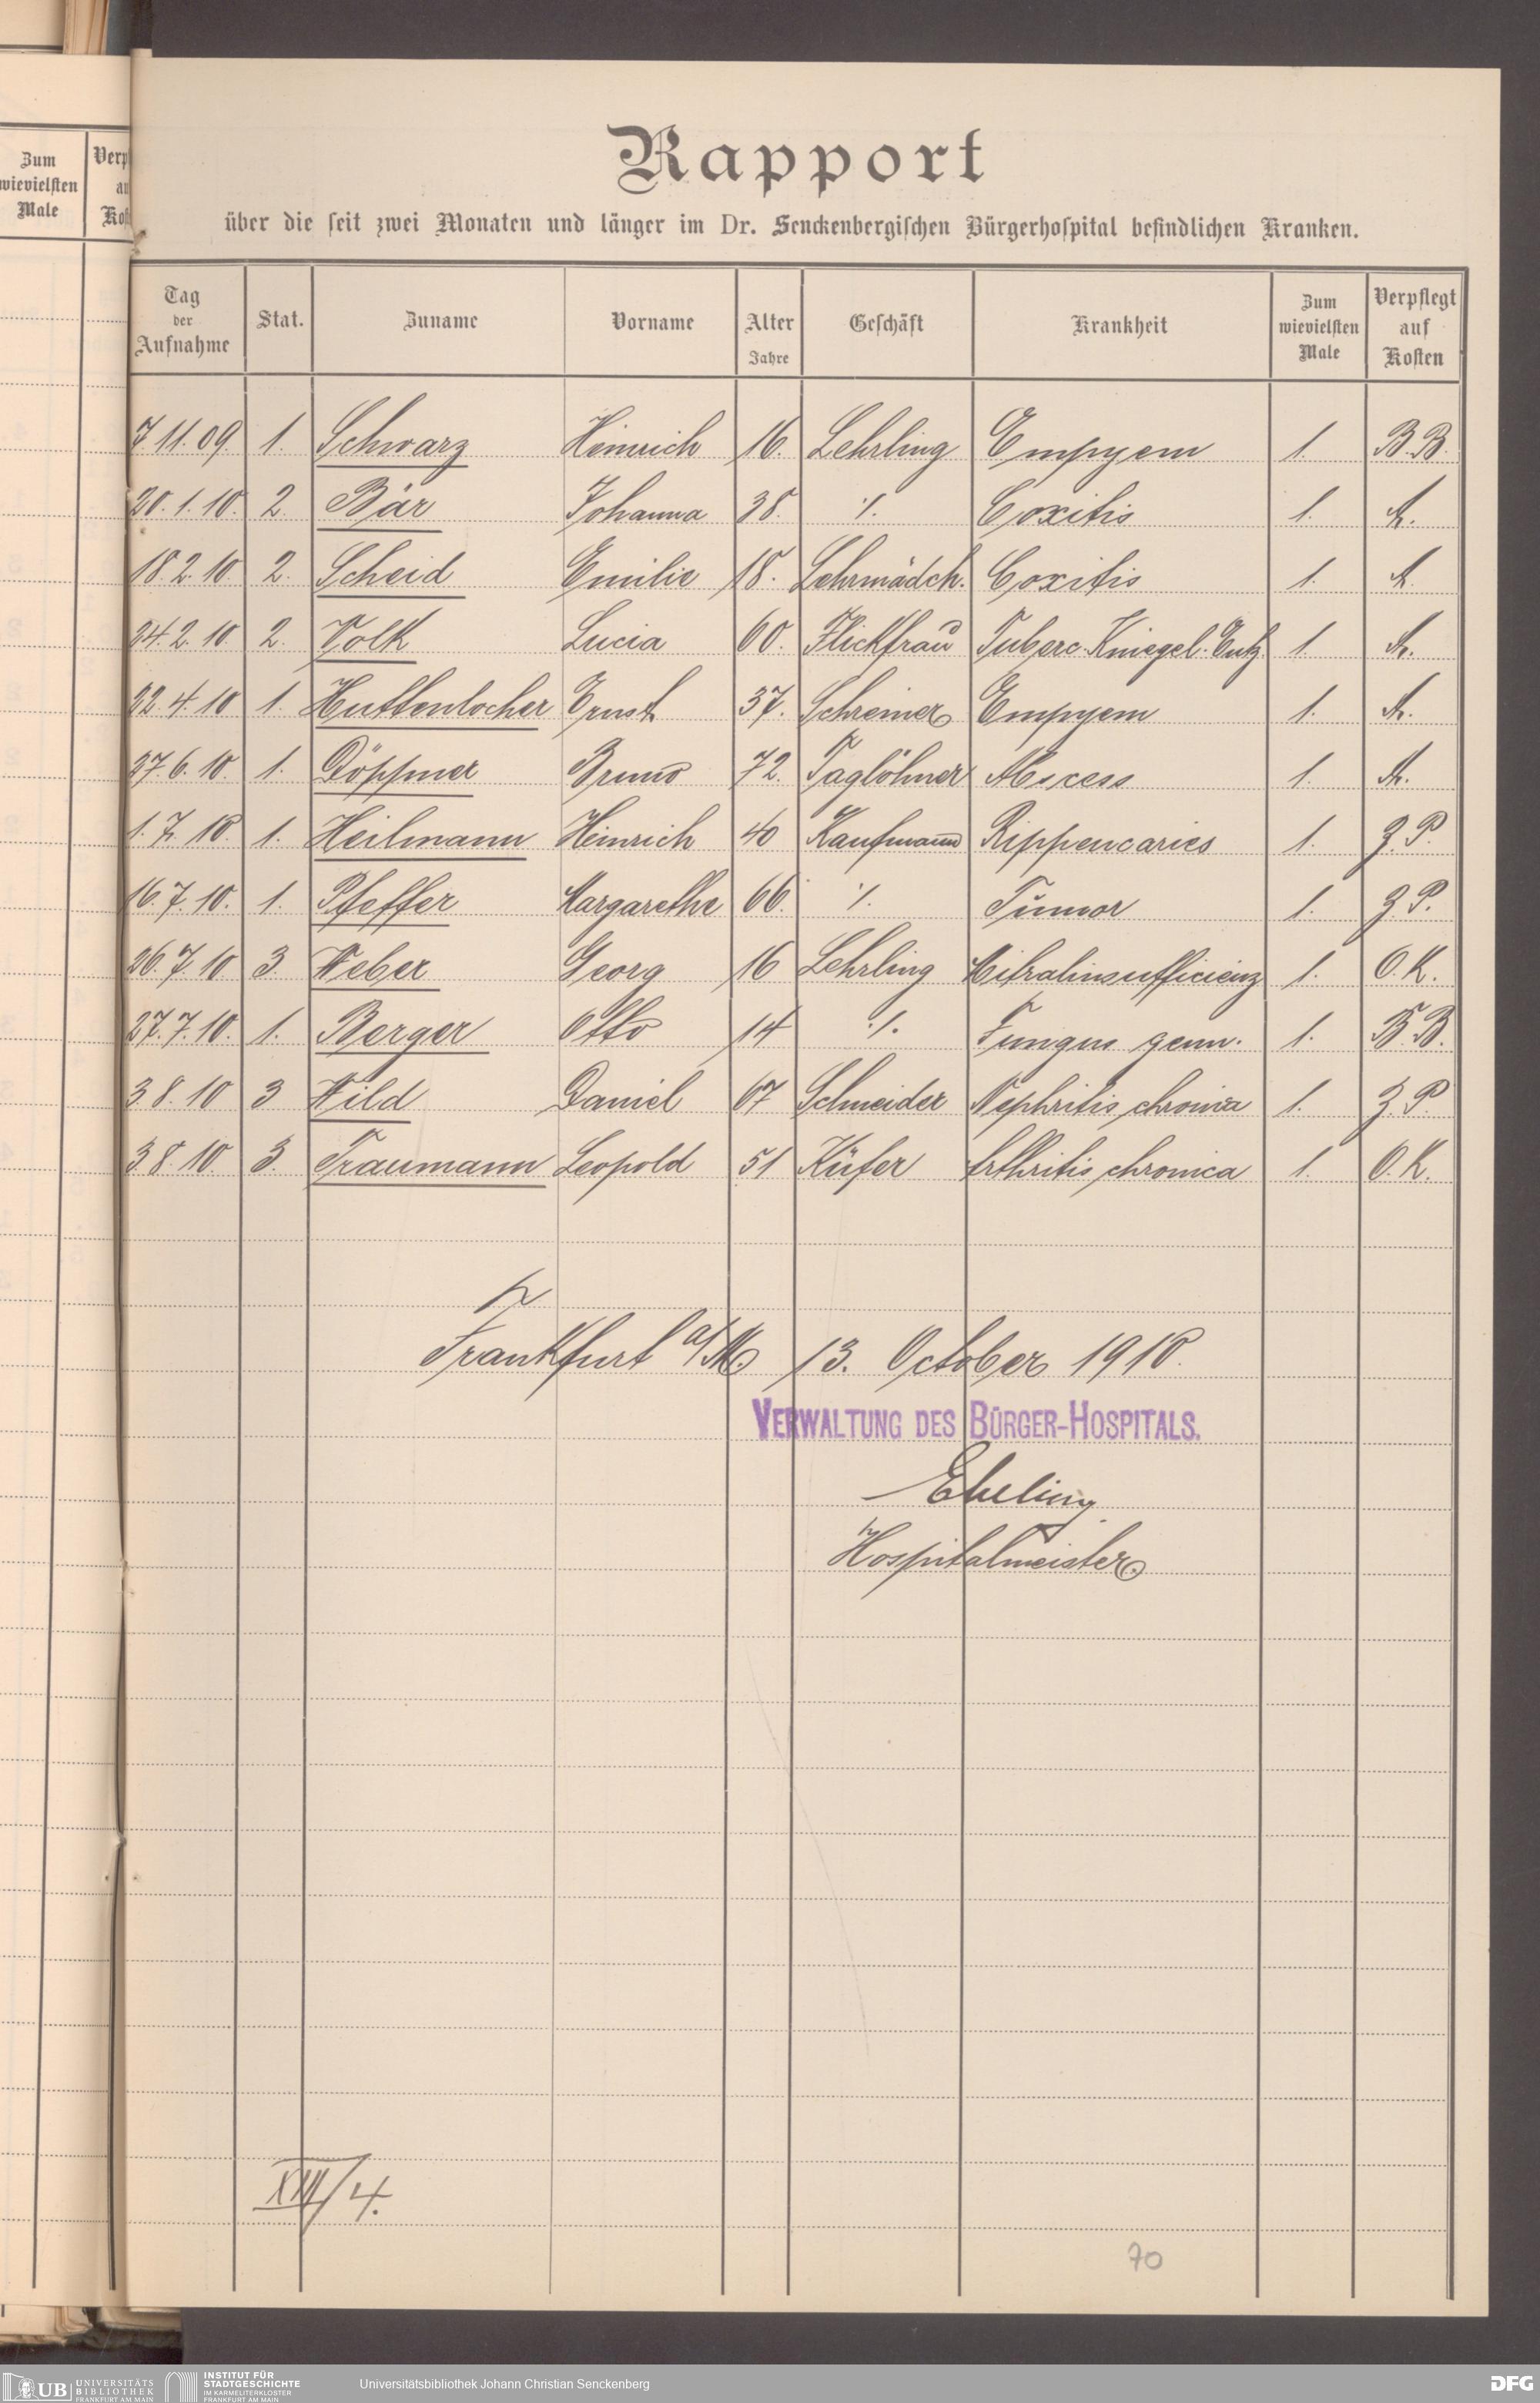 Zum
wievielsten
Male
Verp
au
Kost
Rapport
über die seit zwei Monaten und länger im Dr. Senckenbergischen Bürgerhospital befindlichen Kranken.
Tag der Aufnahme Stat. Zuname Vorname Alter Jahre Geschäft Krankheit Zum wievielsten Male Verpflegt auf Kosten
7.11.09. 1. Schwarz Heinrich 16. Lehrling Empyem 1. B.B.
20.1.10. 2. Bär Johanna 38. ./. Coxitis 1. A.
18.2.10. 2. Scheid Emilie 18. Lehrmädch. Coxitis 1. A.
24.2.10. 2. Volk Lucia 60. Flickfrau Tuberc. Kniegel. Entz. 1. A.
22.4.10 1. Huttenlocher Ernst 37. Schreiner Empyem 1. A.
27.6.10. 1. Döppner Bruno 72. Taglöhner Abscess 1. A.
1.7.10. 1. Heilmann Heinrich 40 Kaufmann Rippencaries 1. Z.P.
16.7.10. 1. Pfeffer Margarethe 66. ./. Tumor 1. Z.P.
26.7.10 3. Weber Georg 16 Lehrling Mitralinsufficienz 1. O.K.
27.7.10. 1. Berger Otto 14 ./. Fungus genu. 1. B.B.
3.8.10 3 Wild Daniel 67 Schneider Nephritis chronica 1. Z.P.
3.8.10. 3. Traumann Leopold 51 Küfer Arthritis chronica 1. O.K.
Frankfurt a/M 13. October 1910.
VERWALTUNG DES BÜRGER-HOSPITALS.
Ebeling
Hospitalmeister.
XIII/4.
70
UB UNIVERSITÄTS BIBLIOTHEK FRANKFURT AM MAIN
INSTITUT FÜR STADTGESCHICHTE IM KARMELITERKLOSTER FRANKFURT AM MAIN
Universitätsbibliothek Johann Christian Senckenberg
DFG